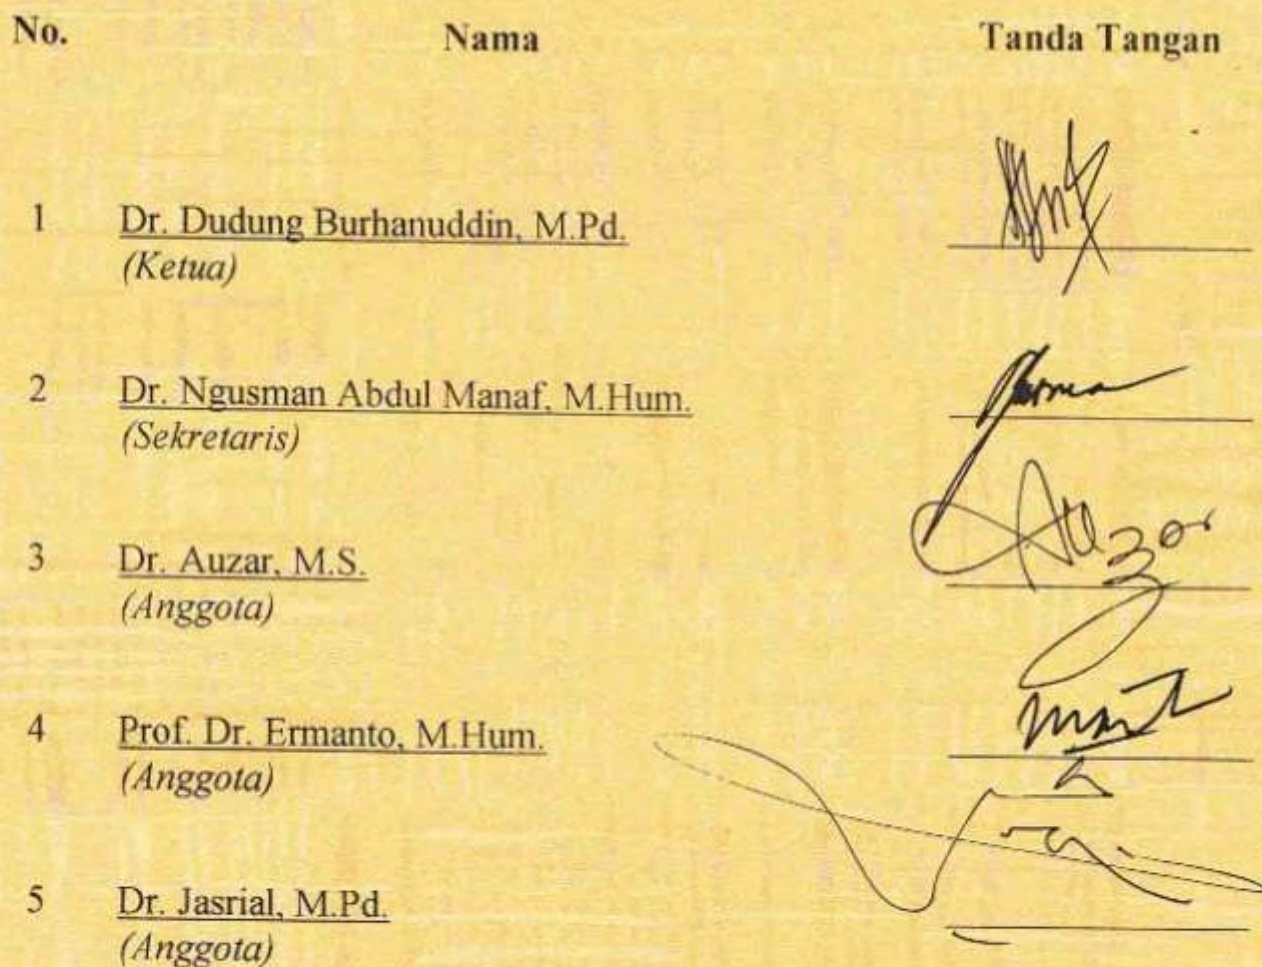 No. Nama Tanda Tangan
1 Dr. Dudung Burhanuddin, M.Pd.
(Ketua)
2 Dr. Ngusman Abdul Manaf, M.Hum.
(Sekretaris)
3 Dr. Auzar, M.S.
(Anggota)
4 Prof. Dr. Ermanto, M.Hum.
(Anggota)
5 Dr. Jasrial, M.Pd.
(Anggota)